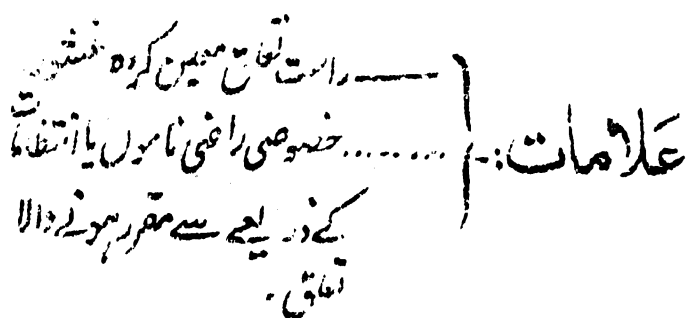 علامات:-
——— راست تعلق معین کردہ
......... خصوصی راضی ناموں یا انتظامات
کے ذریعے سے مقرر ہونے والا
تعلق۔